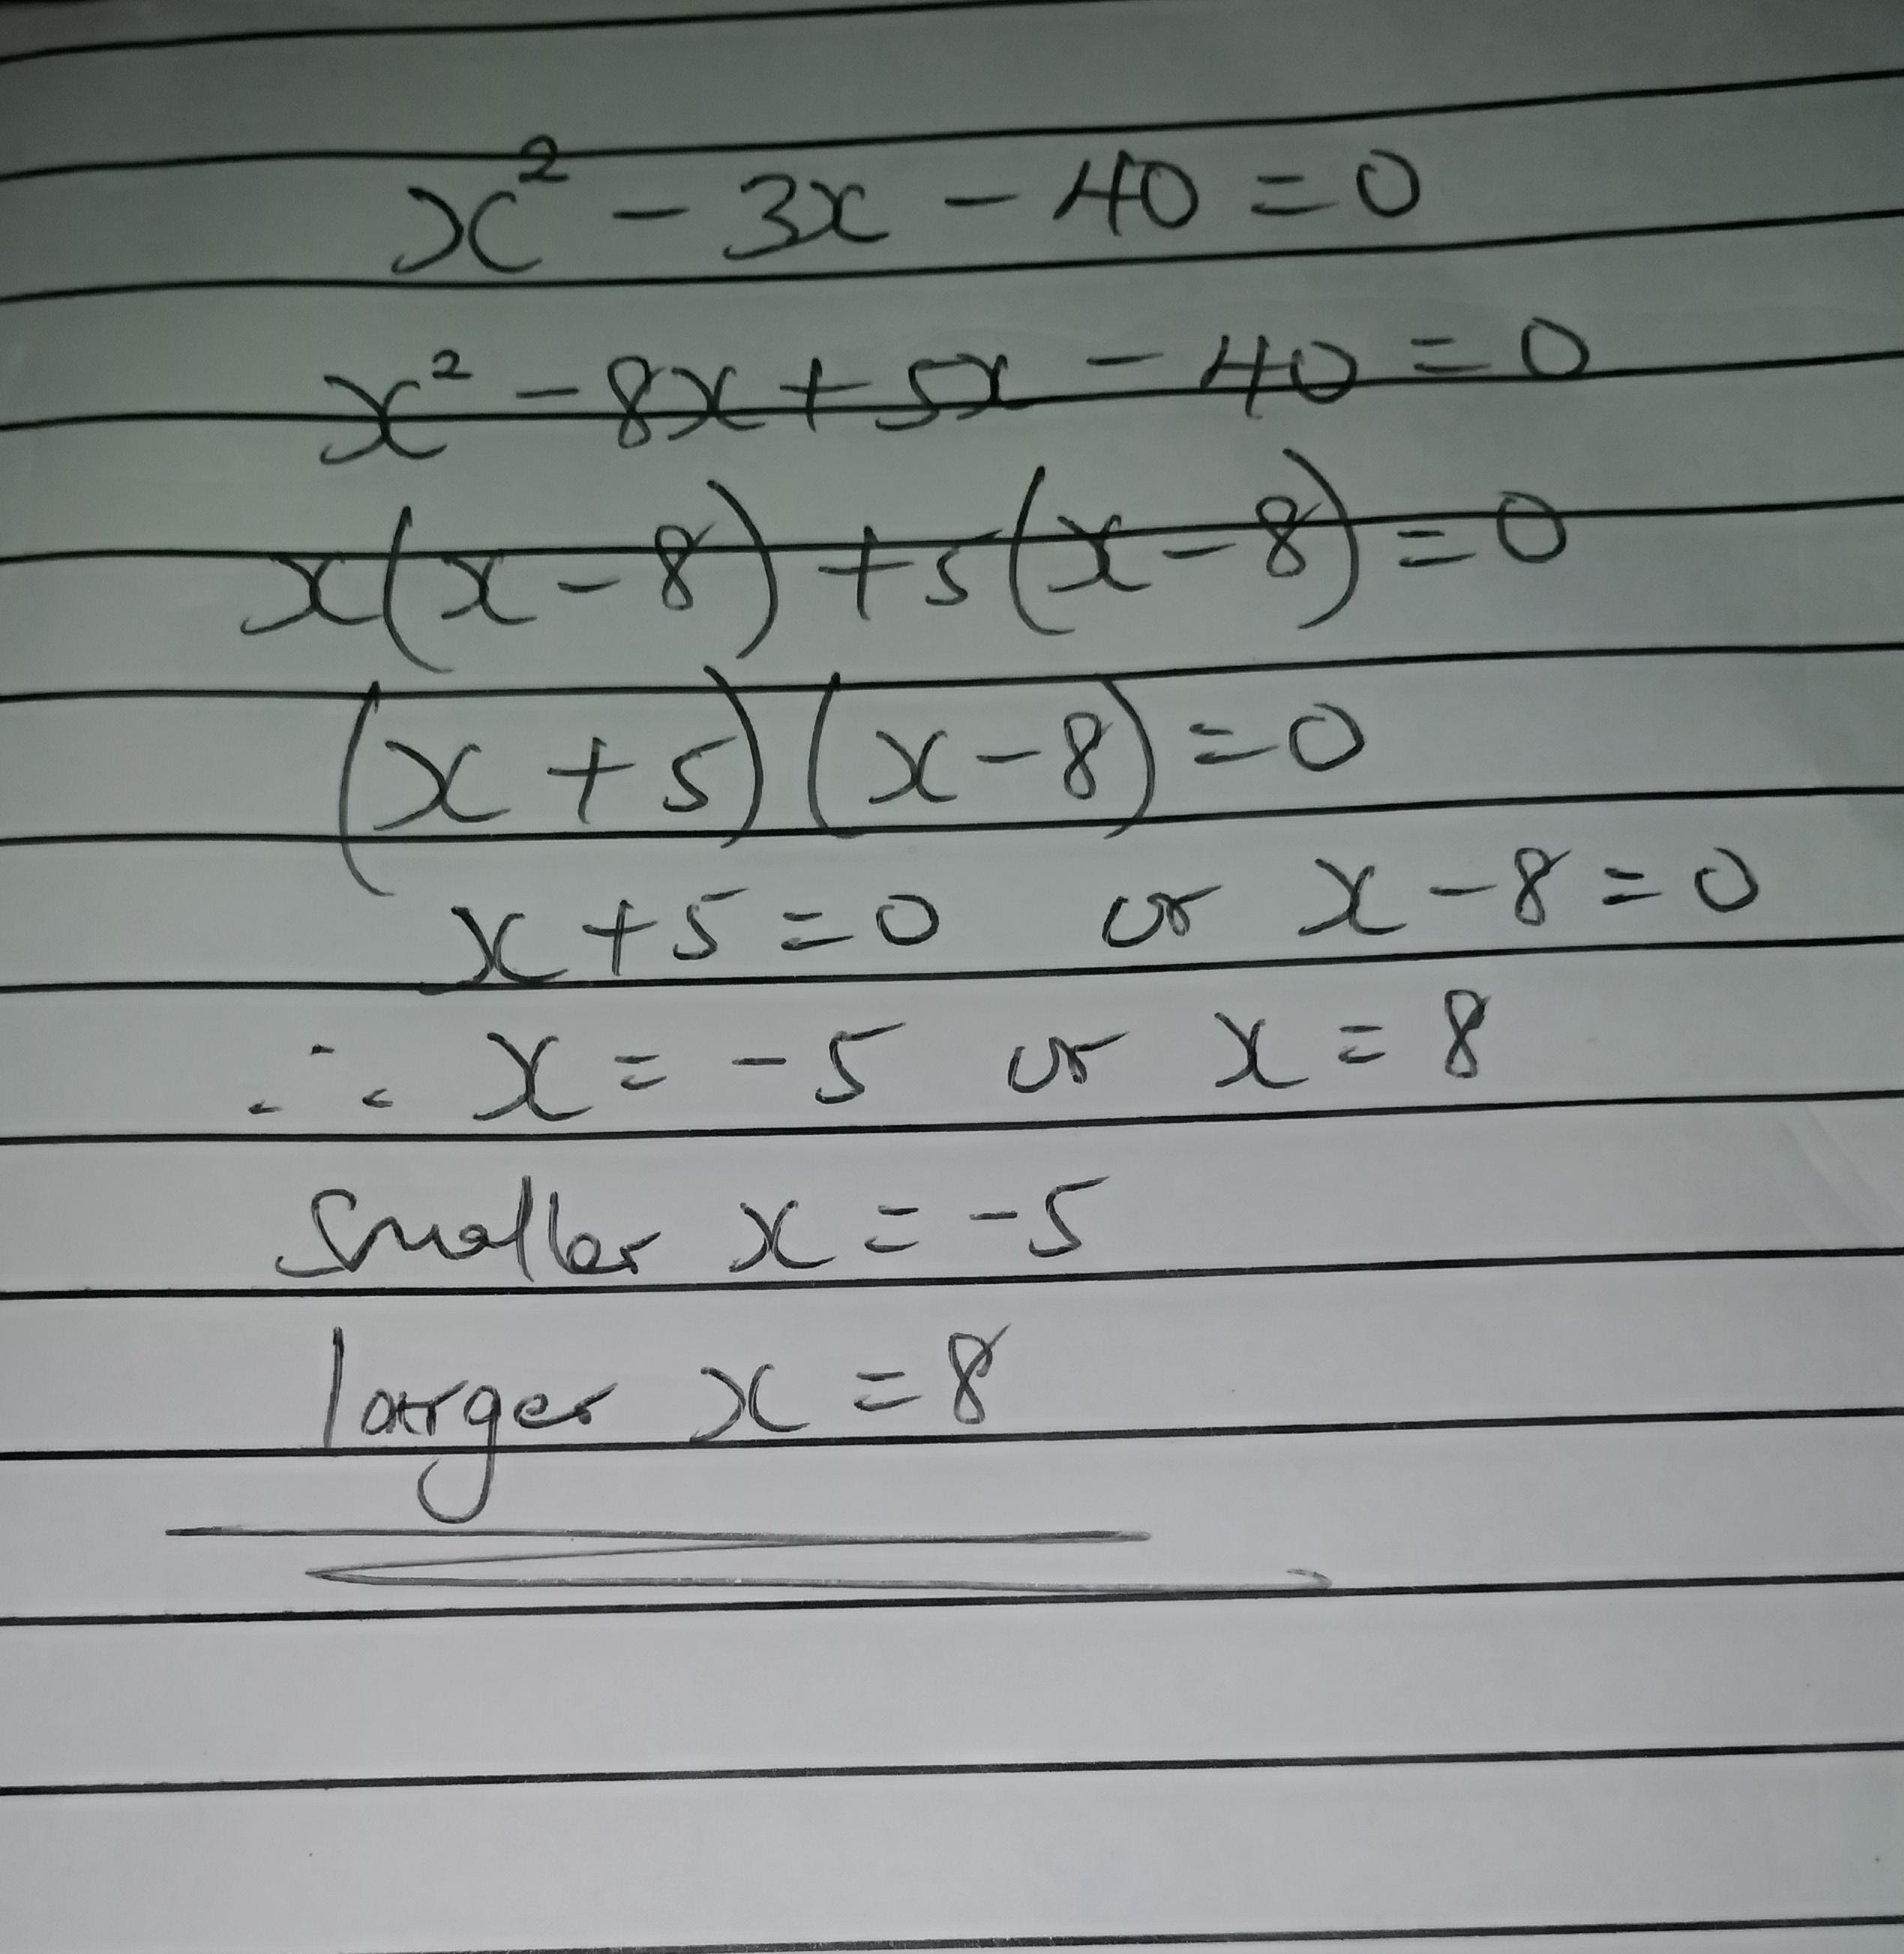 x² - 3x - 40 = 0
x² - 8x + 5x - 40 = 0
x(x - 8) + 5(x - 8) = 0
(x + 5)(x - 8) = 0
x + 5 = 0 or x - 8 = 0
∴ x = -5 or x = 8
Smaller x = -5
larger x = 8